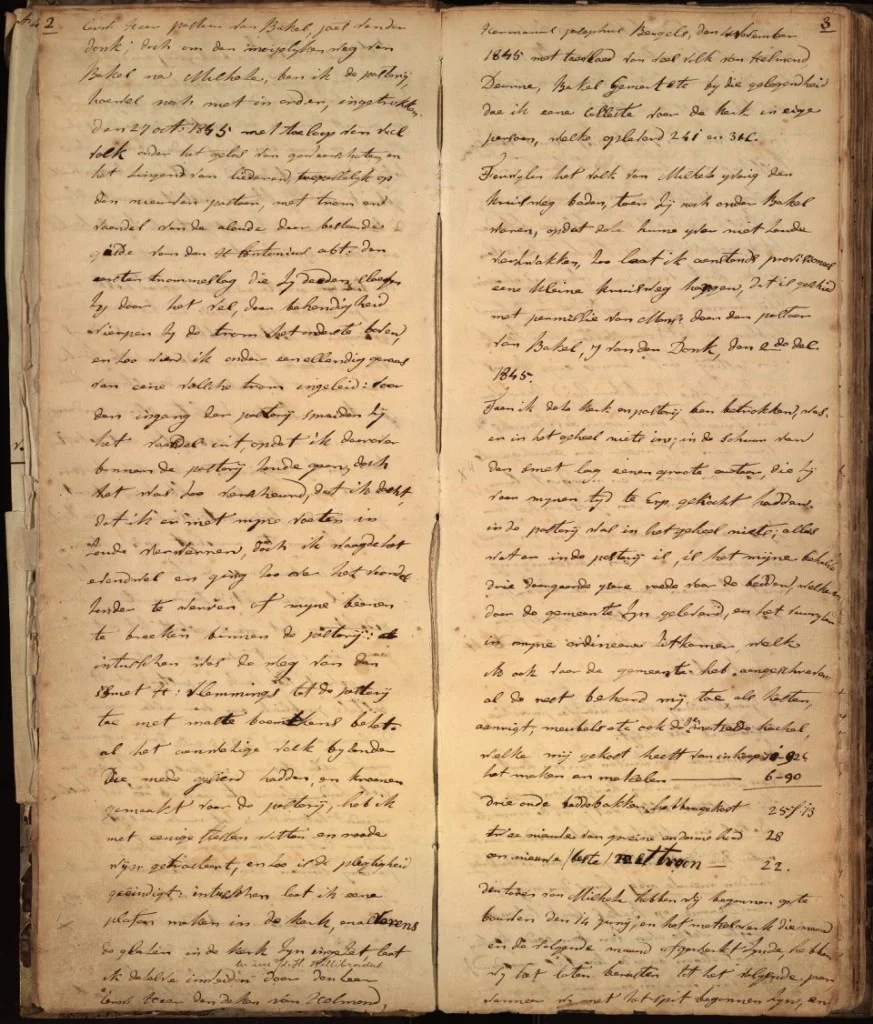 2
Eerw Heer pastoor van Bakel, paol van den
donk; doch om den moijelyken weg van
Bakel na Milheze, ben ik de pastorij,
hoewel noch niet in orden, ingetrokken
den 27 octo 1845 met toeloop van veel
volk onder het gelos van geweerschoten, en
het zingen van liederen, toepasselyk op
den nieuwen pastoor, met trom en
vaendel van de aloude daer bestaende
gilde van den H: Antonius abt: den
eersten trommelslag die zy deeden, sloegen
zy door het vel, door behendigheid
wierpen zy de trom het onderste boven,
en zoo wierd ik onder een ellendig geraas
van eene valsche trom ingeleid: voor
den ingang der pastorij spreiden zy
het vaendel uit, opdat ik daerover
binnen de pastorij zoude gaen, doch
het was zoo verscheurd, dat ik dacht,
dat ik er met myne voeten in
zoude verwerren, doch ik waagde het
evenwel en ging zoo over het vaendel
zonder te vallen of myne beenen
te breeken binnen de pastorij:
intusschen was de weg van den
smet H: Vlemmings tot de pastorij
toe met matte boomkens bezet.
al het aanwezige volk byzonder
die mede gevierd hadden, en kroonen
gemaakt voor de pastorij, heb ik
met eenige flessen witten en rooden
wijn getracteert, en zoo is de plegtigheid
geeindigt: intusschen laat ik eene
platon maken in de kerk, en
de glazen in de kerk zyn ingezet laat
ik dezelve inwijden door den zeer
Eerw Heer den deken van Helmond,
3
Hermanus josephus Bengels, den 4 November
1845 met toevloed van veel volk van Helmond
Deurne, Bakel Gemert etc by die gelegendheid
doe ik eene collecte voor de kerk in eige
persoon, welke opleverd 241 en 31c.
Terwylen het volk van Milheze yverig den
kruisweg baden, toen zy noch onder Bakel
waren, opdat dezen hunne yver niet zoude
verswakken, zoo laat ik aenstonds provisioneel
eene kleine kruisweg hangen, dit is geschied
met permissie van Monsr door den pastoor
van Bakel, J van den Donk, den 2de dec.
1845.
Toen ik deze kerk en pastorij ben betrokken, was
er in het geheel niets in; in de schuur van
den smet lag eenen groote autaer, die zy
voor mynen tyd te Erp gekocht hadden.
in de pastorij was in het geheel niets; alles
wat er in de pastorij is, is het mijne behalve
drie doorgaende yzere roede voor de bedden, welke
door de gemeente zyn geleverd, en het
in myne ordineerse zitkamer, welk
ik ook voor de gemeente heb aengeschreven
al de rest behoord mij toe, als kasten,
meubels etc ook de kachel,
welke mij gekost heeft van inkoop
het maken en metselen — 6-90
drie oude beddebakken het heeft gekost 25/13
twee nieuwe van 28
een nieuwe 22.
den toren van Milheze hebben wij begonnen op te
bouwen den 14 junij, en het metselwerk die maand
en de volgende maand afgewerkt zynde, hebben
wy het laten berusten tot het volgende jaar
wanneer wy met het spit begonnen zyn, en